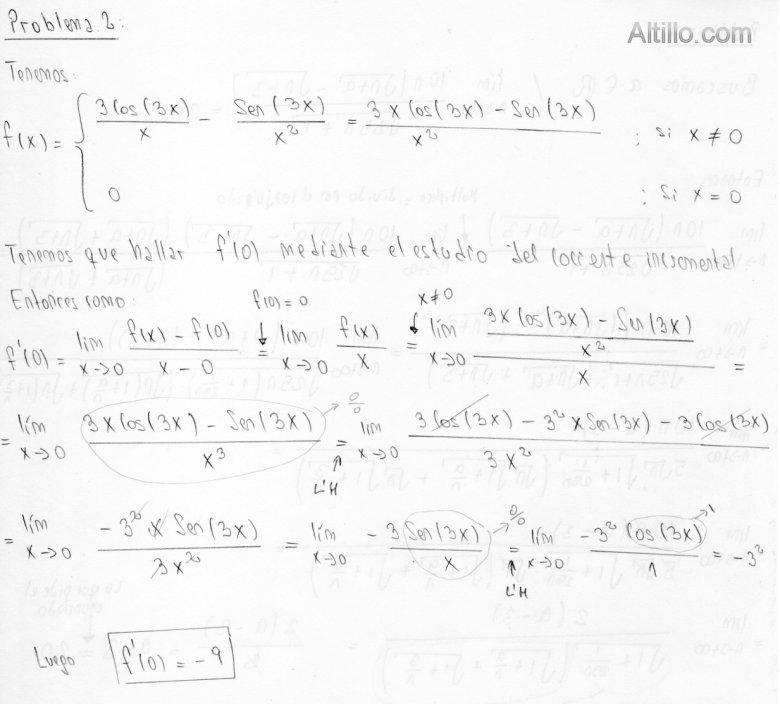 Problema 2:
Altillo.com
Tenemos:
f(x) = { 3Cos(3x)/x - Sen(3x)/x² = (3x Cos(3x) - Sen(3x))/x² ; si x ≠ 0
0 ; si x = 0
Tenemos que hallar f'(0) mediante el estudio del cociente incremental
Entonces como: f(0) = 0 x ≠ 0
f'(0) = lim x→0 (f(x) - f(0))/(x - 0) = lim x→0 f(x)/x = lim x→0 ((3x Cos(3x) - Sen(3x))/x²)/x =
= lím x→0 (3x Cos(3x) - Sen(3x))/x³ → 0/0 = L'H lím x→0 (3 Cos(3x) - 3² x Sen(3x) - 3 Cos(3x))/3x²
= lím x→0 (-3² x Sen(3x))/3x² = lím x→0 -3 Sen(3x)/x → 0/0 = L'H lím x→0 (-3² Cos(3x))/1 → 1 = -3²
Luego f'(0) = -9